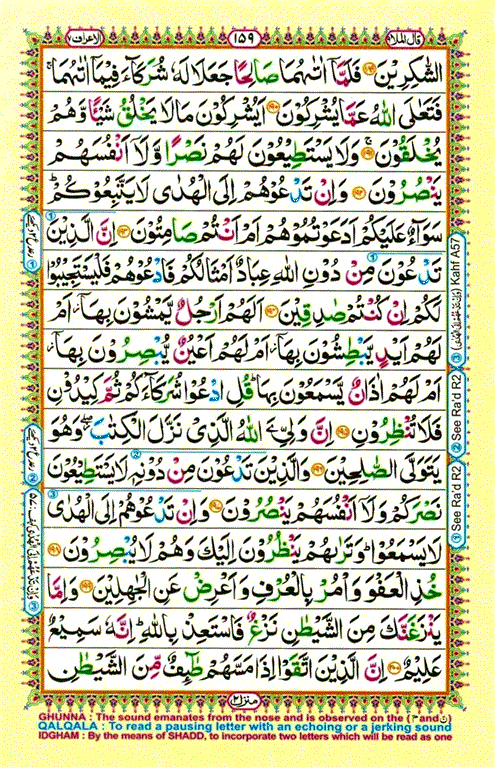 قال الملأ ٩
١٥٩
الاعراف ٧
الشّٰكِرِیْنَ ﴿۱۸۹﴾ فَلَمَّاۤ اٰتٰىهُمَا صَالِحًا جَعَلَا لَهٗ شُرَكَآءَ فِیْمَاۤ اٰتٰىهُمَا ۚ
فَتَعٰلَی اللّٰهُ عَمَّا یُشْرِكُوْنَ ﴿۱۹۰﴾ اَیُشْرِكُوْنَ مَا لَا یَخْلُقُ شَیْـًٔا وَّ هُمْ
یُخْلَقُوْنَ ﴿۱۹۱﴾ وَ لَا یَسْتَطِیْعُوْنَ لَهُمْ نَصْرًا وَّ لَاۤ اَنْفُسَهُمْ
یَنْصُرُوْنَ ﴿۱۹۲﴾ وَ اِنْ تَدْعُوْهُمْ اِلَی الْهُدٰی لَا یَتَّبِعُوْكُمْ ؕ
سَوَآءٌ عَلَیْكُمْ اَدَعَوْتُمُوْهُمْ اَمْ اَنْتُمْ صَامِتُوْنَ ﴿۱۹۳﴾ اِنَّ الَّذِیْنَ
تَدْعُوْنَ مِنْ دُوْنِ اللّٰهِ عِبَادٌ اَمْثَالُكُمْ فَادْعُوْهُمْ فَلْیَسْتَجِیْبُوْا
لَكُمْ اِنْ كُنْتُمْ صٰدِقِیْنَ ﴿۱۹۴﴾ اَلَهُمْ اَرْجُلٌ یَّمْشُوْنَ بِهَاۤ ؗ اَمْ
لَهُمْ اَیْدٍ یَّبْطِشُوْنَ بِهَاۤ ؗ اَمْ لَهُمْ اَعْیُنٌ یُّبْصِرُوْنَ بِهَاۤ ؗ
اَمْ لَهُمْ اٰذَانٌ یَّسْمَعُوْنَ بِهَا ؕ قُلِ ادْعُوْا شُرَكَآءَكُمْ ثُمَّ كِیْدُوْنِ
فَلَا تُنْظِرُوْنِ ﴿۱۹۵﴾ اِنَّ وَلِیِّ �َۧ اللّٰهُ الَّذِیْ نَزَّلَ الْكِتٰبَ ۖؗ وَ هُوَ
یَتَوَلَّی الصّٰلِحِیْنَ ﴿۱۹۶﴾ وَ الَّذِیْنَ تَدْعُوْنَ مِنْ دُوْنِهٖ لَا یَسْتَطِیْعُوْنَ
نَصْرَكُمْ وَ لَاۤ اَنْفُسَهُمْ یَنْصُرُوْنَ ﴿۱۹۷﴾ وَ اِنْ تَدْعُوْهُمْ اِلَی الْهُدٰی
لَا یَسْمَعُوْا ؕ وَ تَرٰىهُمْ یَنْظُرُوْنَ اِلَیْكَ وَ هُمْ لَا یُبْصِرُوْنَ ﴿۱۹۸﴾
خُذِ الْعَفْوَ وَ اْمُرْ بِالْعُرْفِ وَ اَعْرِضْ عَنِ الْجٰهِلِیْنَ ﴿۱۹۹﴾ وَ اِمَّا
یَنْزَغَنَّكَ مِنَ الشَّیْطٰنِ نَزْغٌ فَاسْتَعِذْ بِاللّٰهِ ؕ اِنَّهٗ سَمِیْعٌ
عَلِیْمٌ ﴿۲۰۰﴾ اِنَّ الَّذِیْنَ اتَّقَوْا اِذَا مَسَّهُمْ طٰٓىِٕفٌ مِّنَ الشَّیْطٰنِ
منزل ٢
① See Ra'd R2
② See Ra'd R2
③ Kahf A57
GHUNNA : The sound emanates from the nose and is observed on the (م and ن)
QALQALA : To read a pausing letter with an echoing or a jerking sound
IDGHAM : By the means of SHADD, to incorporate two letters which will be read as one